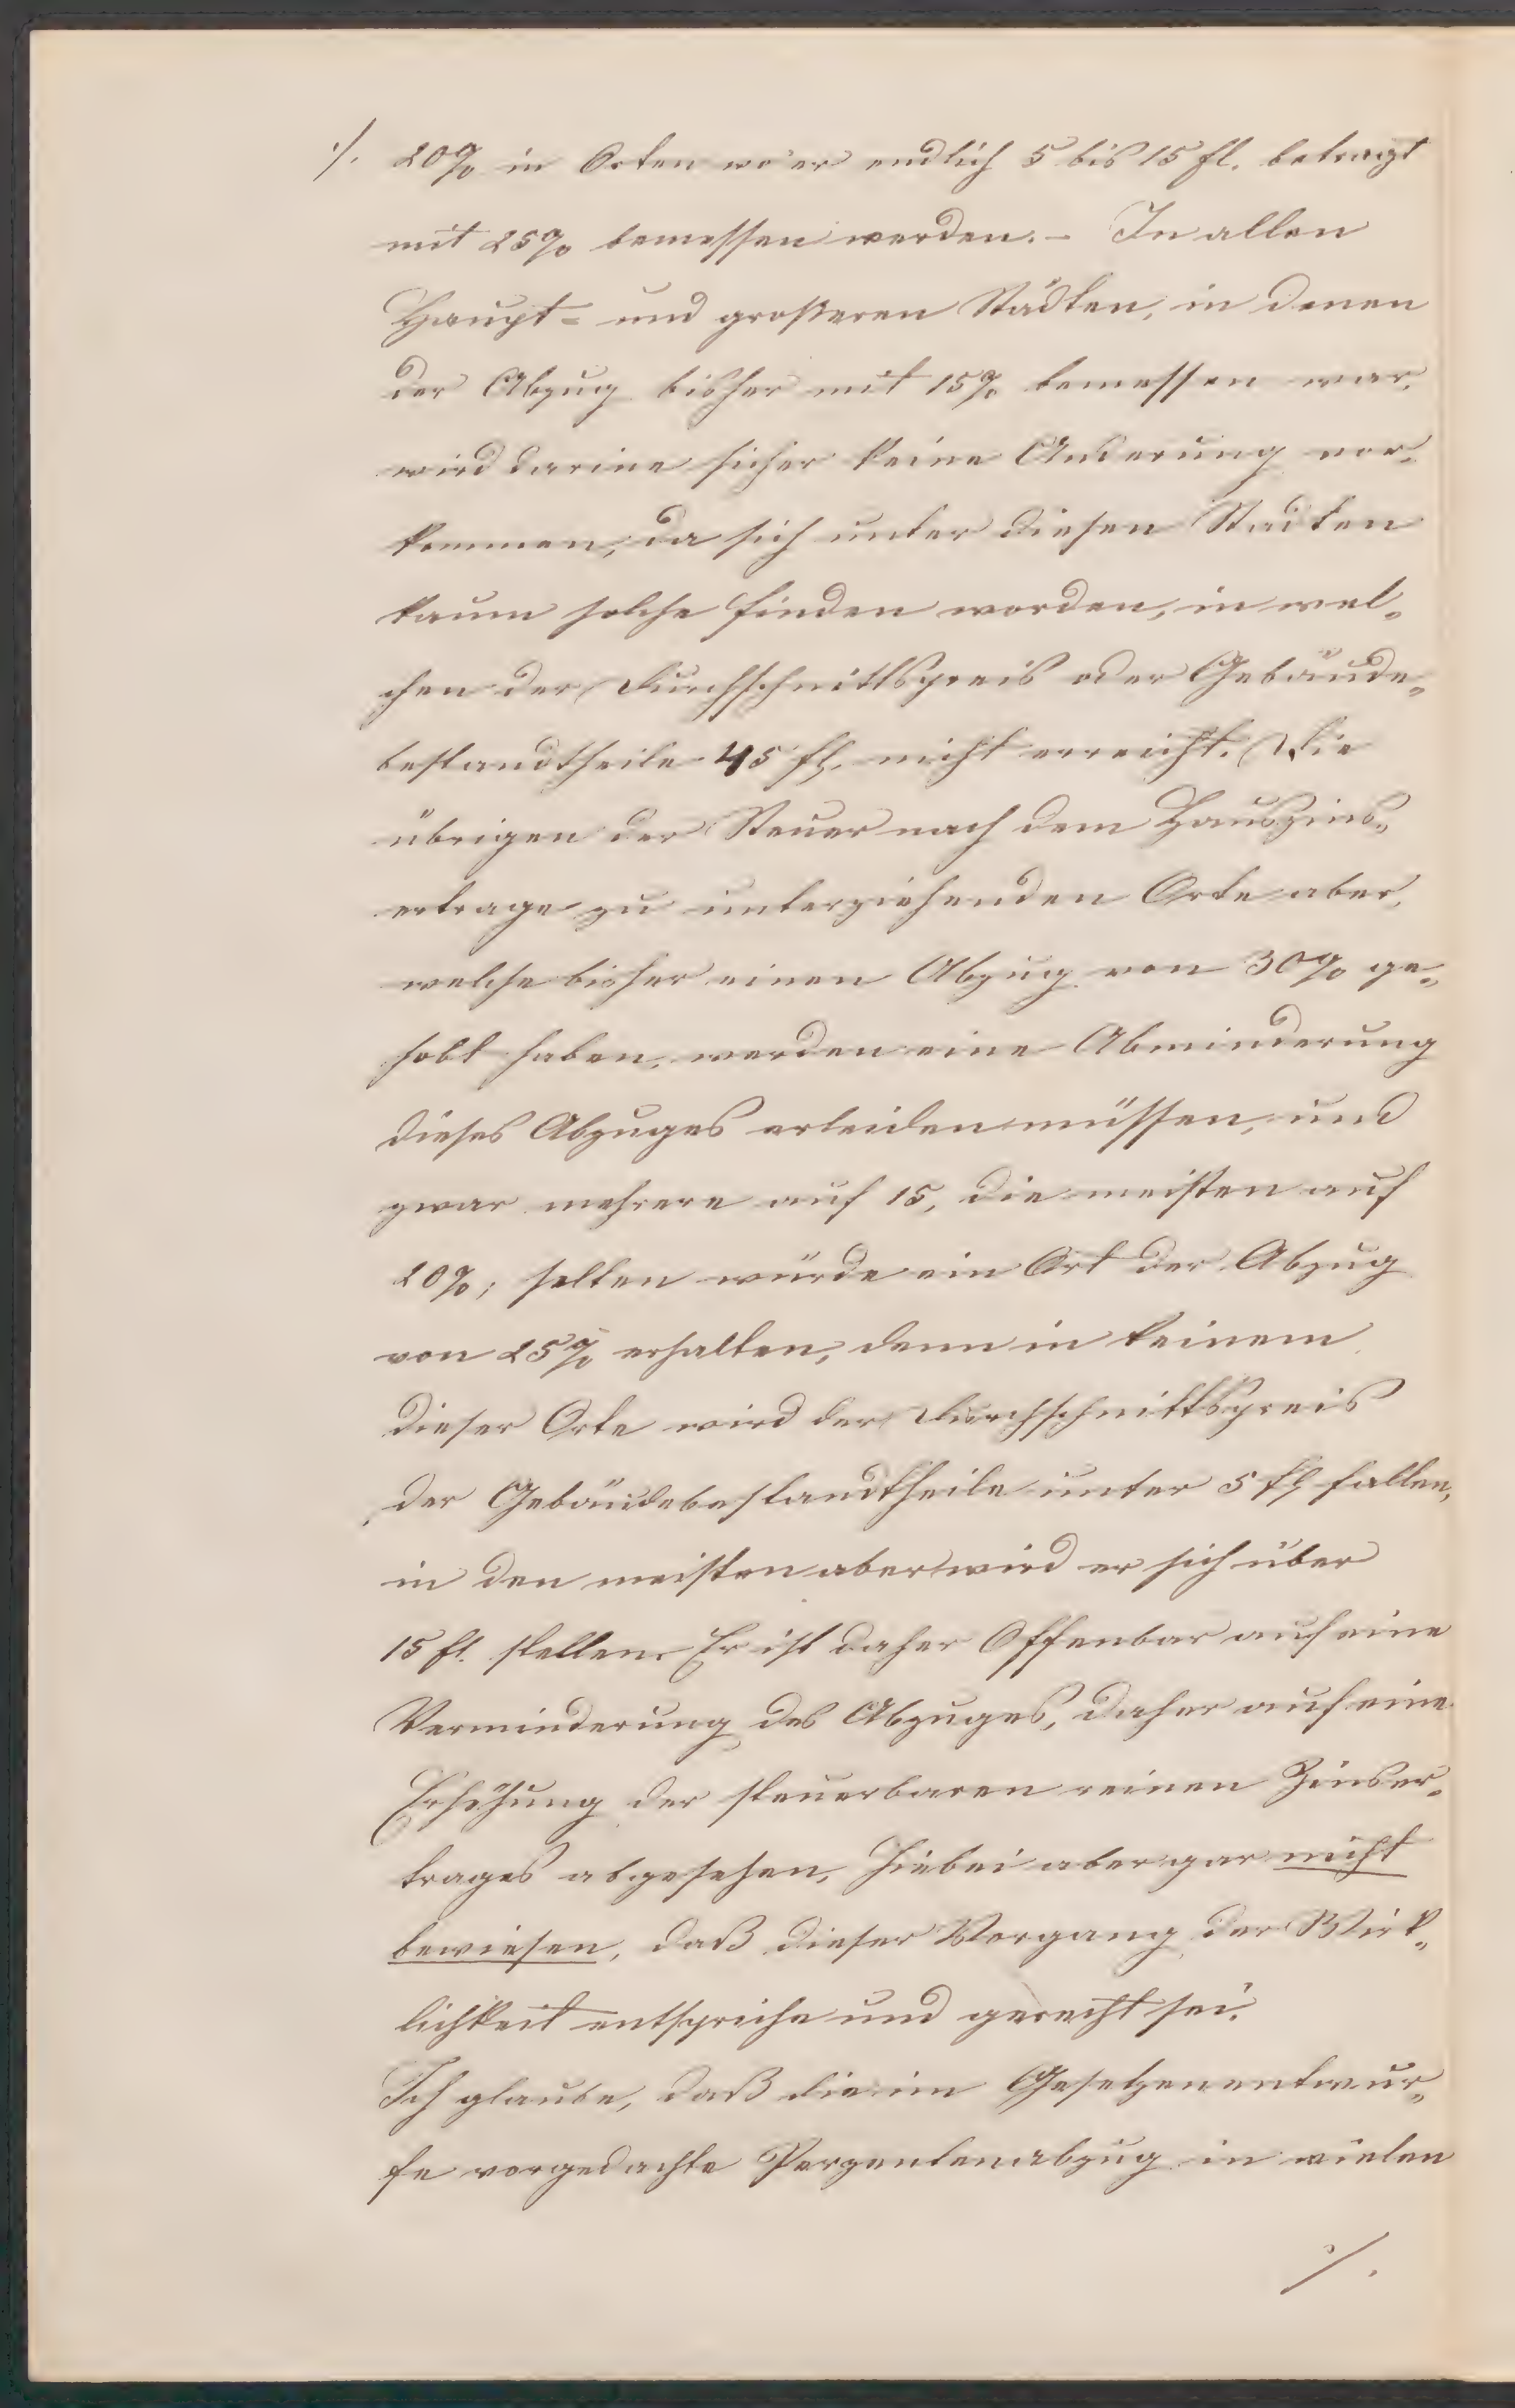 ·/. 20% in Orten wo er endlich 5 bis 15 fl. betragt
mit 25% bemessen werden. – In allen
Haupt= und großeren Städten, in denen
der Abzug bisher mit 15% bemessen war,
wird darine sicher keine Anderung vor-
kommen, da sich unter diesen Stadten
kaum solche finden worden, in wel-
chen der Durchschnittspreis oder Gebäude-
bestandtheile 45 fl. nicht erreicht. Die
übrigen der Steuer nach dem Hauszins-
ertrage zu unterziehenden Orte aber,
welche bisher einen Abzug von 30% ge-
habt haben, werden eine Abminderung
dieses Abzuges erleiden müssen, und
zwar mehrere auf 15, die meisten auf
20%; selten würde ein Ort der Abzug
von 25% erhalten, denn in keinem
dieser Orte wird der Durchschnittspreis
der Gebäudebestandtheile unter 5 fl fallen,
in den meisten aber wird er sich über
15 fl. stellen. Er ist daher Offenbar auf eine
Verminderung des Abzuges, daher auf eine
Erhöhung der steuerbaren reinen Zinser-
trages abgesehen, hiebei aber gar nicht
bewiesen, daß dieser Vorgang der Wirk-
lichkeit entspriche und gerecht sei.
Ich glaube, daß die im Gesetzenentwur-
fe vorgedachte Perzentenabzug in vielen
·/.